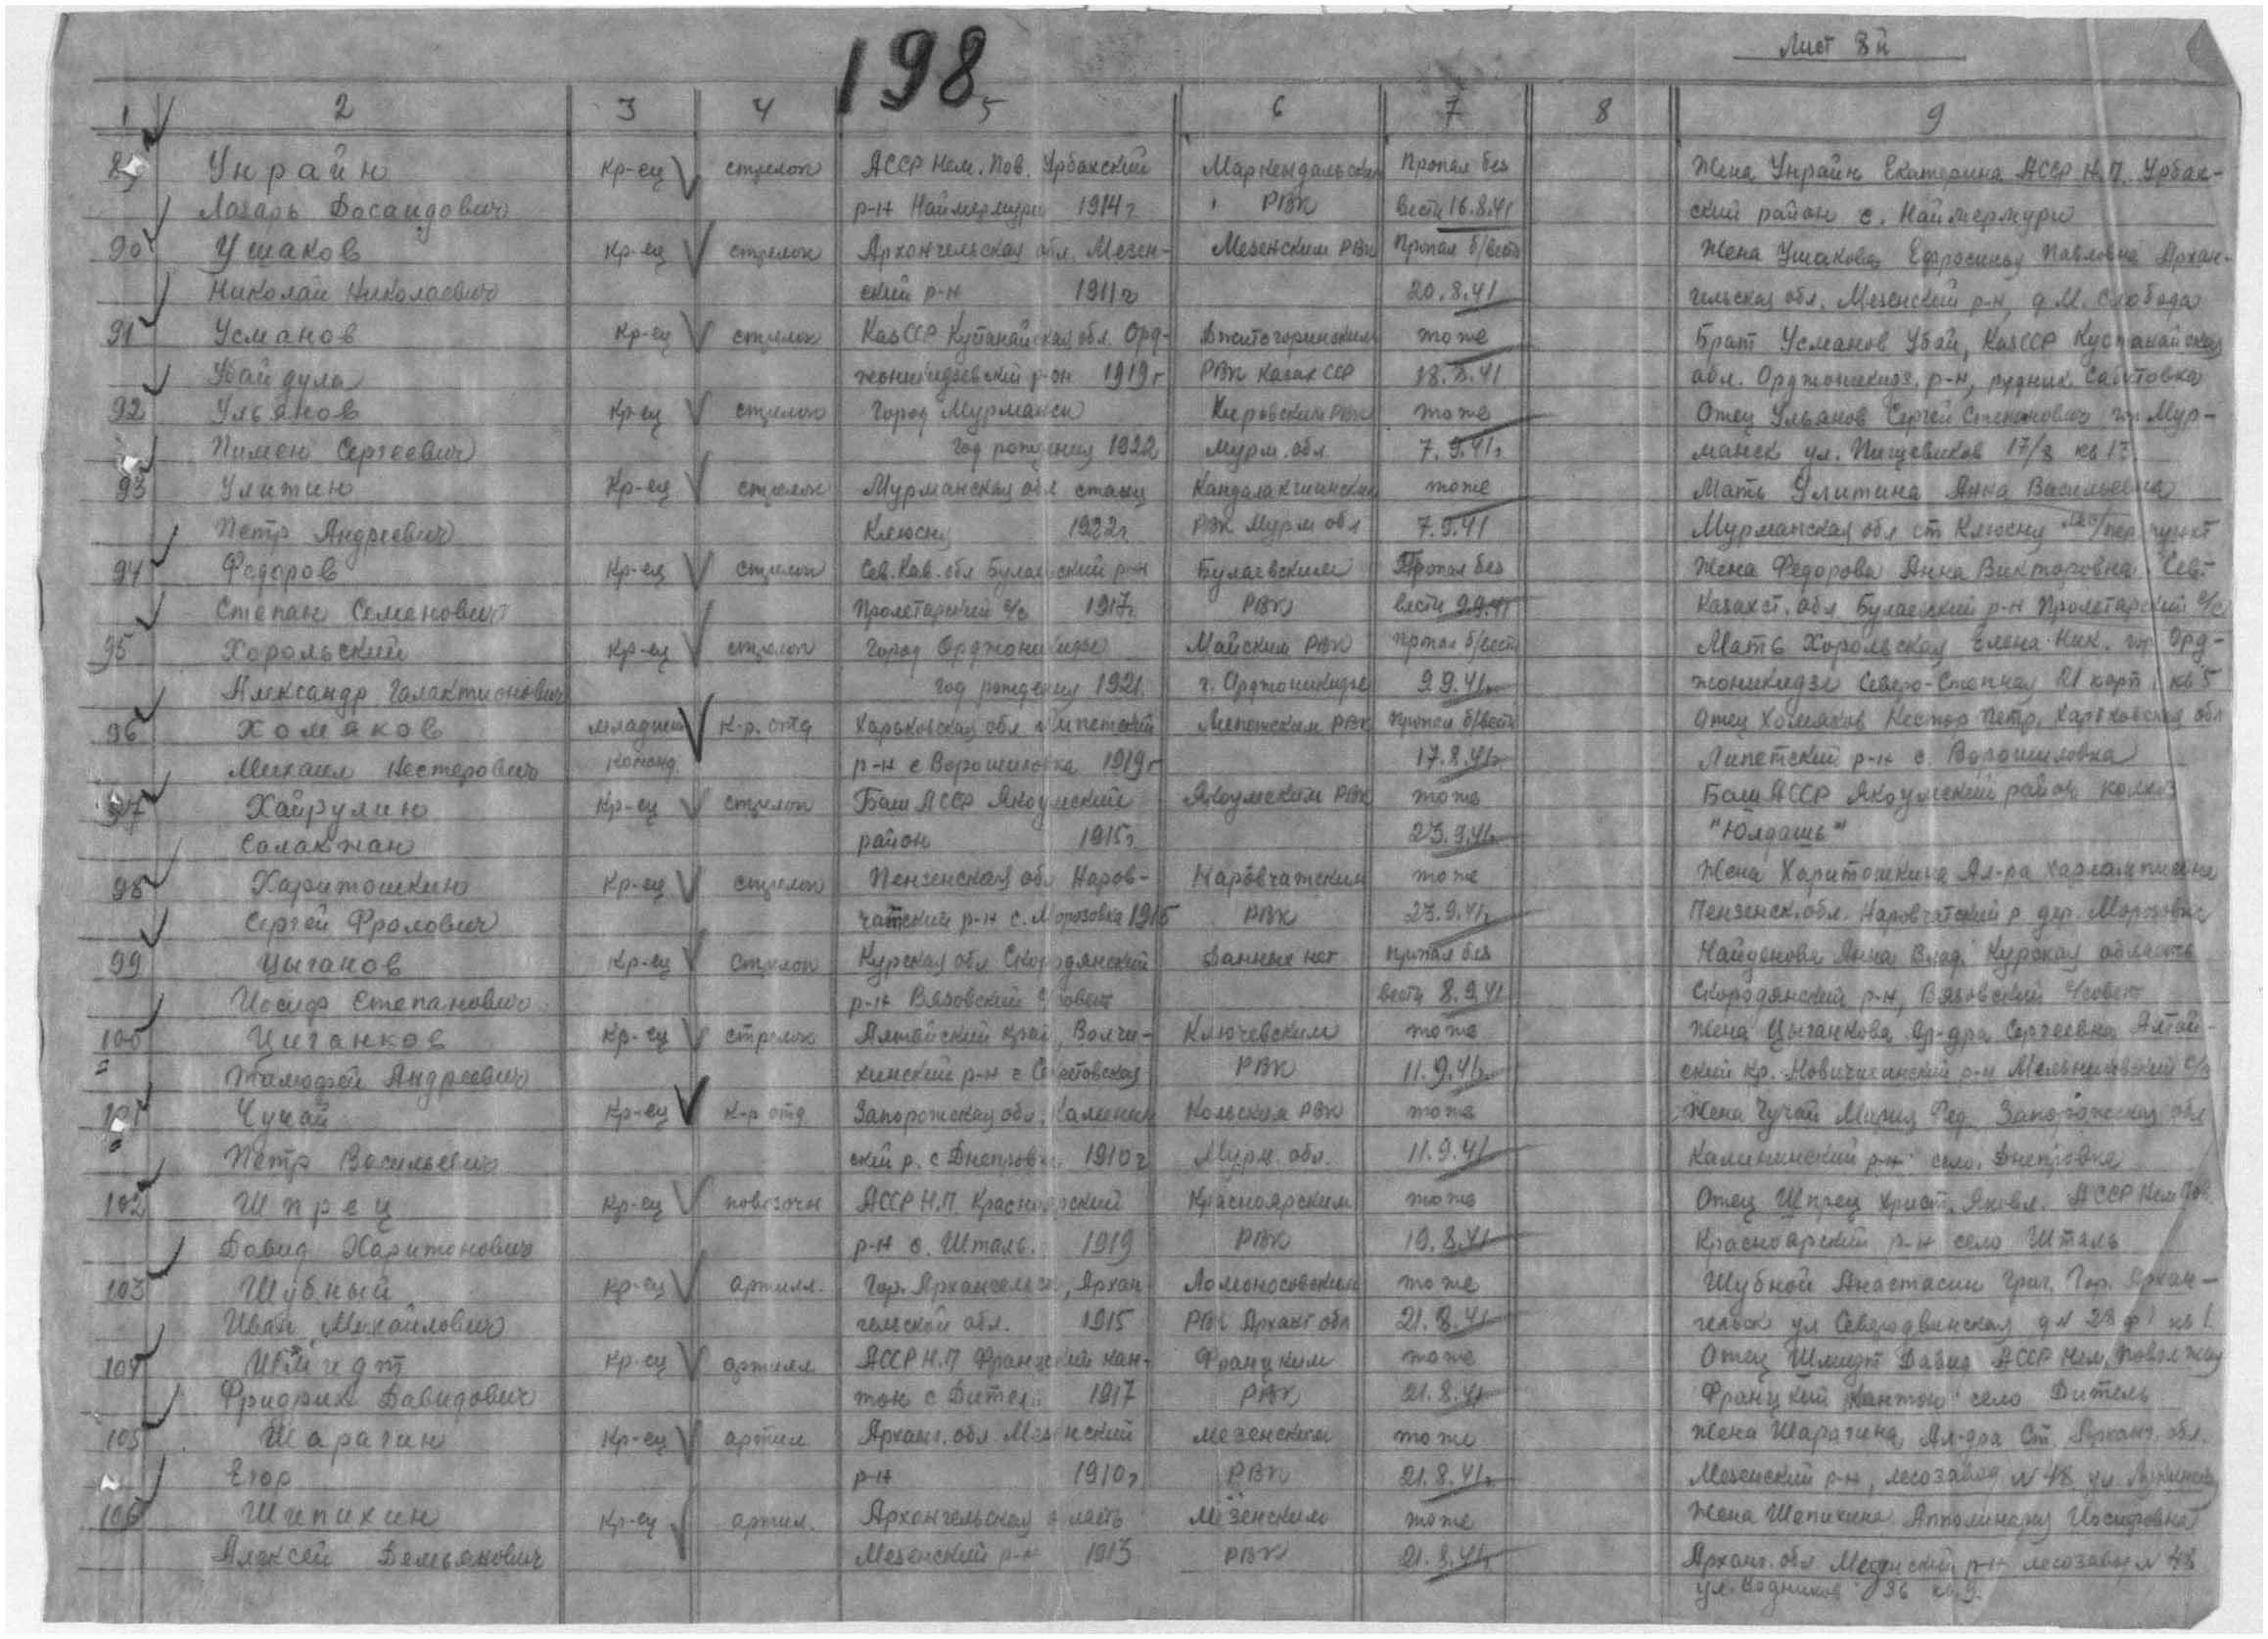 Лист 8й
198
1 2 3 4 5 6 7 8 9
89 Унрайн Кр-ец стрелок АССР Нем. Пов. Урбахский Пропал без Жена Унрайн Екатерина АССР Н.П. Урбах-
Лазарь р-н 1914г РВК вести 16.8.41 ский район с.
90 Ушаков Кр-ец стрелок Архангельская обл. Мезен- Мезенским РВК Пропал б/вести Жена Ушакова Ефросинья Павловна Архан-
Николай Николаевич ский р-н 1911г 20.8.41 гельская обл. Мезенский р-н, д. М. Слобода
91 Усманов Кр-ец стрелок КазССР Кустанайская обл. Орд- тоже Брат Усманов Убай, КазССР Кустанайская
Убайдула жоникидзевский р-он 1919г РВК Казах ССР 18.8.41 обл. Орджоникидз. р-н, рудник
92 Ульянов Кр-ец стрелок Город Мурманск Кировским РВК тоже Отец Ульянов Сергей Степанович гор. Мур-
Пимен Сергеевич год рождения 1922 Мурм. обл. 7.9.41г манск ул. Пищевиков 17/8 кв 13
93 Улитин Кр-ец стрелок Мурманская обл станц Кандалакшинским тоже Мать Улитина Анна Васильевна
Петр Андреевич 1922г. РВК Мурм обл 7.9.41 Мурманская обл ст пункт
94 Федоров Кр-ец стрелок Булаевский р-н Булаевским Пропал без Жена Федорова Анна Викторовна. Сев-
Степан Семенович Пролетарский с/с 1917г. РВК вести 9.9.41 Казахст. обл. Булаевский р-н Пролетарский с/с
95 Хорольский Кр-ец стрелок Город Орджоникидзе Майским РВК пропал б/вести Мать Хорольская Елена Ник. гор Орд-
Александр Галактионович год рождения 1921 г. Орджоникидзе 9.9.41г. жоникидзе Северо-Степная 21 корп 1 кв 5
96 Хомяков младший К-р. отд Харьковская обл Липетский Липетским РВК пропал б/вести Отец Хомяков Нестор Петр. Харьковская обл
Михаил Нестерович команд. р-н с Ворошиловка 1919г 17.8.41г. Липетский р-н с. Ворошиловка
97 Хайрулин Кр-ец стрелок Баш АССР РВК тоже Баш АССР район колхоз
район 1915г. 23.9.41г. "Юлдашь"
98 Харитошкин Кр-ец стрелок Пензенская обл Наров- Наровчатским тоже Жена Харитошкина Ал-ра
Сергей Фролович чатский р-н с. Морозовка 1915 РВК 23.9.41г. Пензенск. обл. Наровчатский р дер. Морозовка
99 Цыганов Кр-ец Стрелок Курская обл Скороднянский Данных нет пропал без Найденова Анна Влад. Курская область
Иосиф Степанович р-н Вязовский с/совет вести 8.9.41 Скородянский р-н, Вязовский с/совет
100 Циганков Кр-ец стрелок Алтайский край, Волчи- Ключевским тоже Жена Цыганкова Ал-дра Сергеевна Алтай-
Андреевич хинский р-н с РВК 11.9.41г. ский кр. р-н Мельниковский с/с
101 Чучай Кр-ец К-р отд Запорожская обл. Калинин Кольским РВК тоже Жена Чучай Мария Фед. Запорожская обл
Петр Васильевич ский р. с Днепровка 1910г Мурм. обл. 11.9.41 Калининский р-н село Днепровка
102 Шпрец Кр-ец повозочн АССР Н.П. Красноярский Красноярским тоже Отец Шпрец Христ. Яковл. АССР Нем Пов.
Давид Харитонович р-н с. Шталь. 1919 РВК 19.8.41 Красноярский р-н село Шталь
103 Шубный Кр-ец артилл. Гор. Архангельск, Архан Ломоносовским тоже Шубной Анастасии Григ. Гор. Архан-
Иван Михайлович гельской обл. 1915 РВК Арханг обл 21.8.41 гельск ул Северодвинская д N 28 ф 1 кв 1.
104 Шмидт Кр-ец артилл АССР Н.П Францский кан- Францким тоже Отец Шмидт Давид АССР Нем. Поволжья
Фридрих Давидович тон с Дитель 1917 РВК 21.8.41 Францкий Кантон село Дитель
105 Шарагин Кр-ец артил Арханг. обл. Мезенский Мезенским тоже Жена Шарагина Ал-дра Ст. Арханг. обл.
Егор р-н 1910г РВК 21.8.41г. Мезенский р-н, лесозавод N 48 ул.
106 Шипихин Кр-ец артил. Архангельская область Мезенским тоже Жена Шипихина Апполинария Иосифовна
Алексей Демьянович Мезенский р-н 1913 РВК 21.8.41г Арханг. обл Мезенский р-н лесозавод N 48
ул. Водников 36 кв. 9.